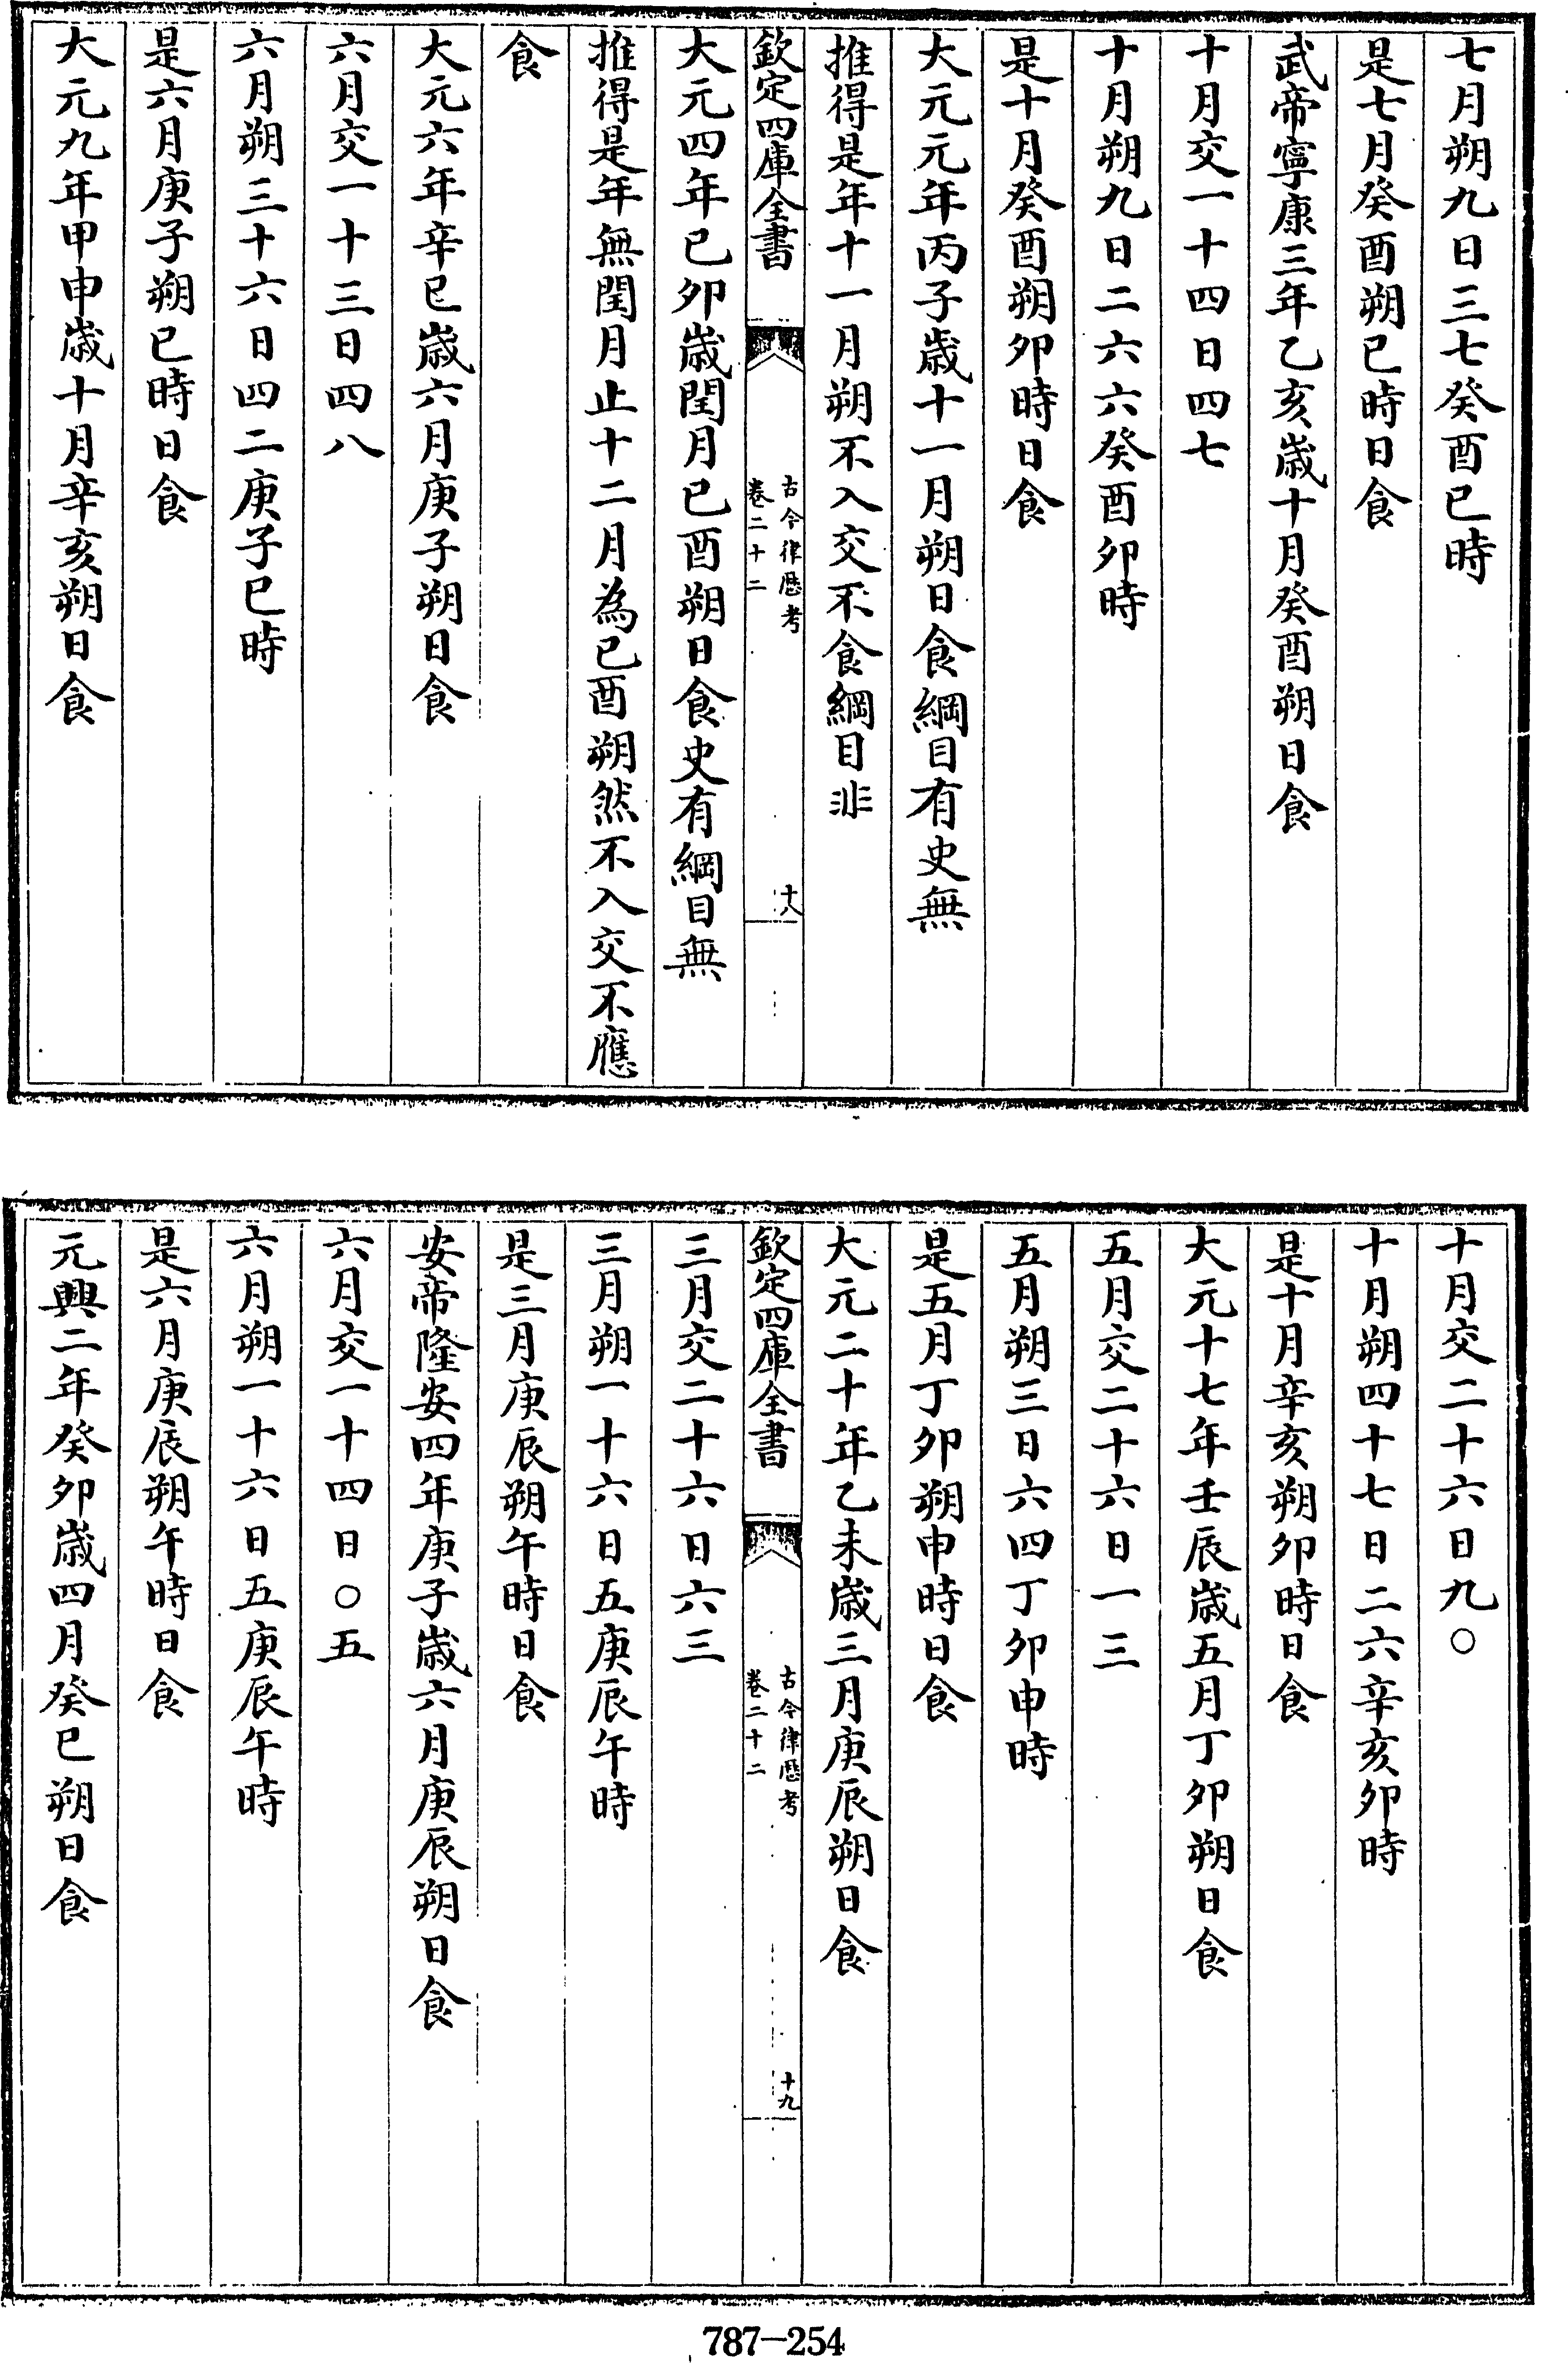 七月朔九日三七癸酉巳時
是七月癸酉朔巳時日食
武帝寧康三年乙亥歲十月癸酉朔日食
十月交一十四日四七
十月朔九日二六六癸酉卯時
是十月癸酉朔卯時日食
大元元年丙子歲十一月朔日食綱目有史無
推得是年十一月朔不入交不食綱目非
欽定四庫全書
古今律歷考
卷二十二
十八
大元四年己卯歲閏月己酉朔日食史有綱目無
推得是年無閏月止十二月為己酉朔然不入交不應
食
大元六年辛巳歲六月庚子朔日食
六月交一十三日四八
六月朔三十六日四二庚子巳時
是六月庚子朔巳時日食
大元九年甲申歲十月辛亥朔日食
十月交二十六日九〇
十月朔四十七日二六辛亥卯時
是十月辛亥朔卯時日食
大元十七年壬辰歲五月丁卯朔日食
五月交二十六日一三
五月朔三日六四丁卯申時
是五月丁卯朔申時日食
大元二十年乙未歲三月庚辰朔日食
欽定四庫全書
古今律歷考
卷二十二
十九
三月交二十六日六三
三月朔一十六日五庚辰午時
是三月庚辰朔午時日食
安帝隆安四年庚子歲六月庚辰朔日食
六月交一十四日〇五
六月朔一十六日五庚辰午時
是六月庚辰朔午時日食
元興二年癸卯歲四月癸巳朔日食
787-254